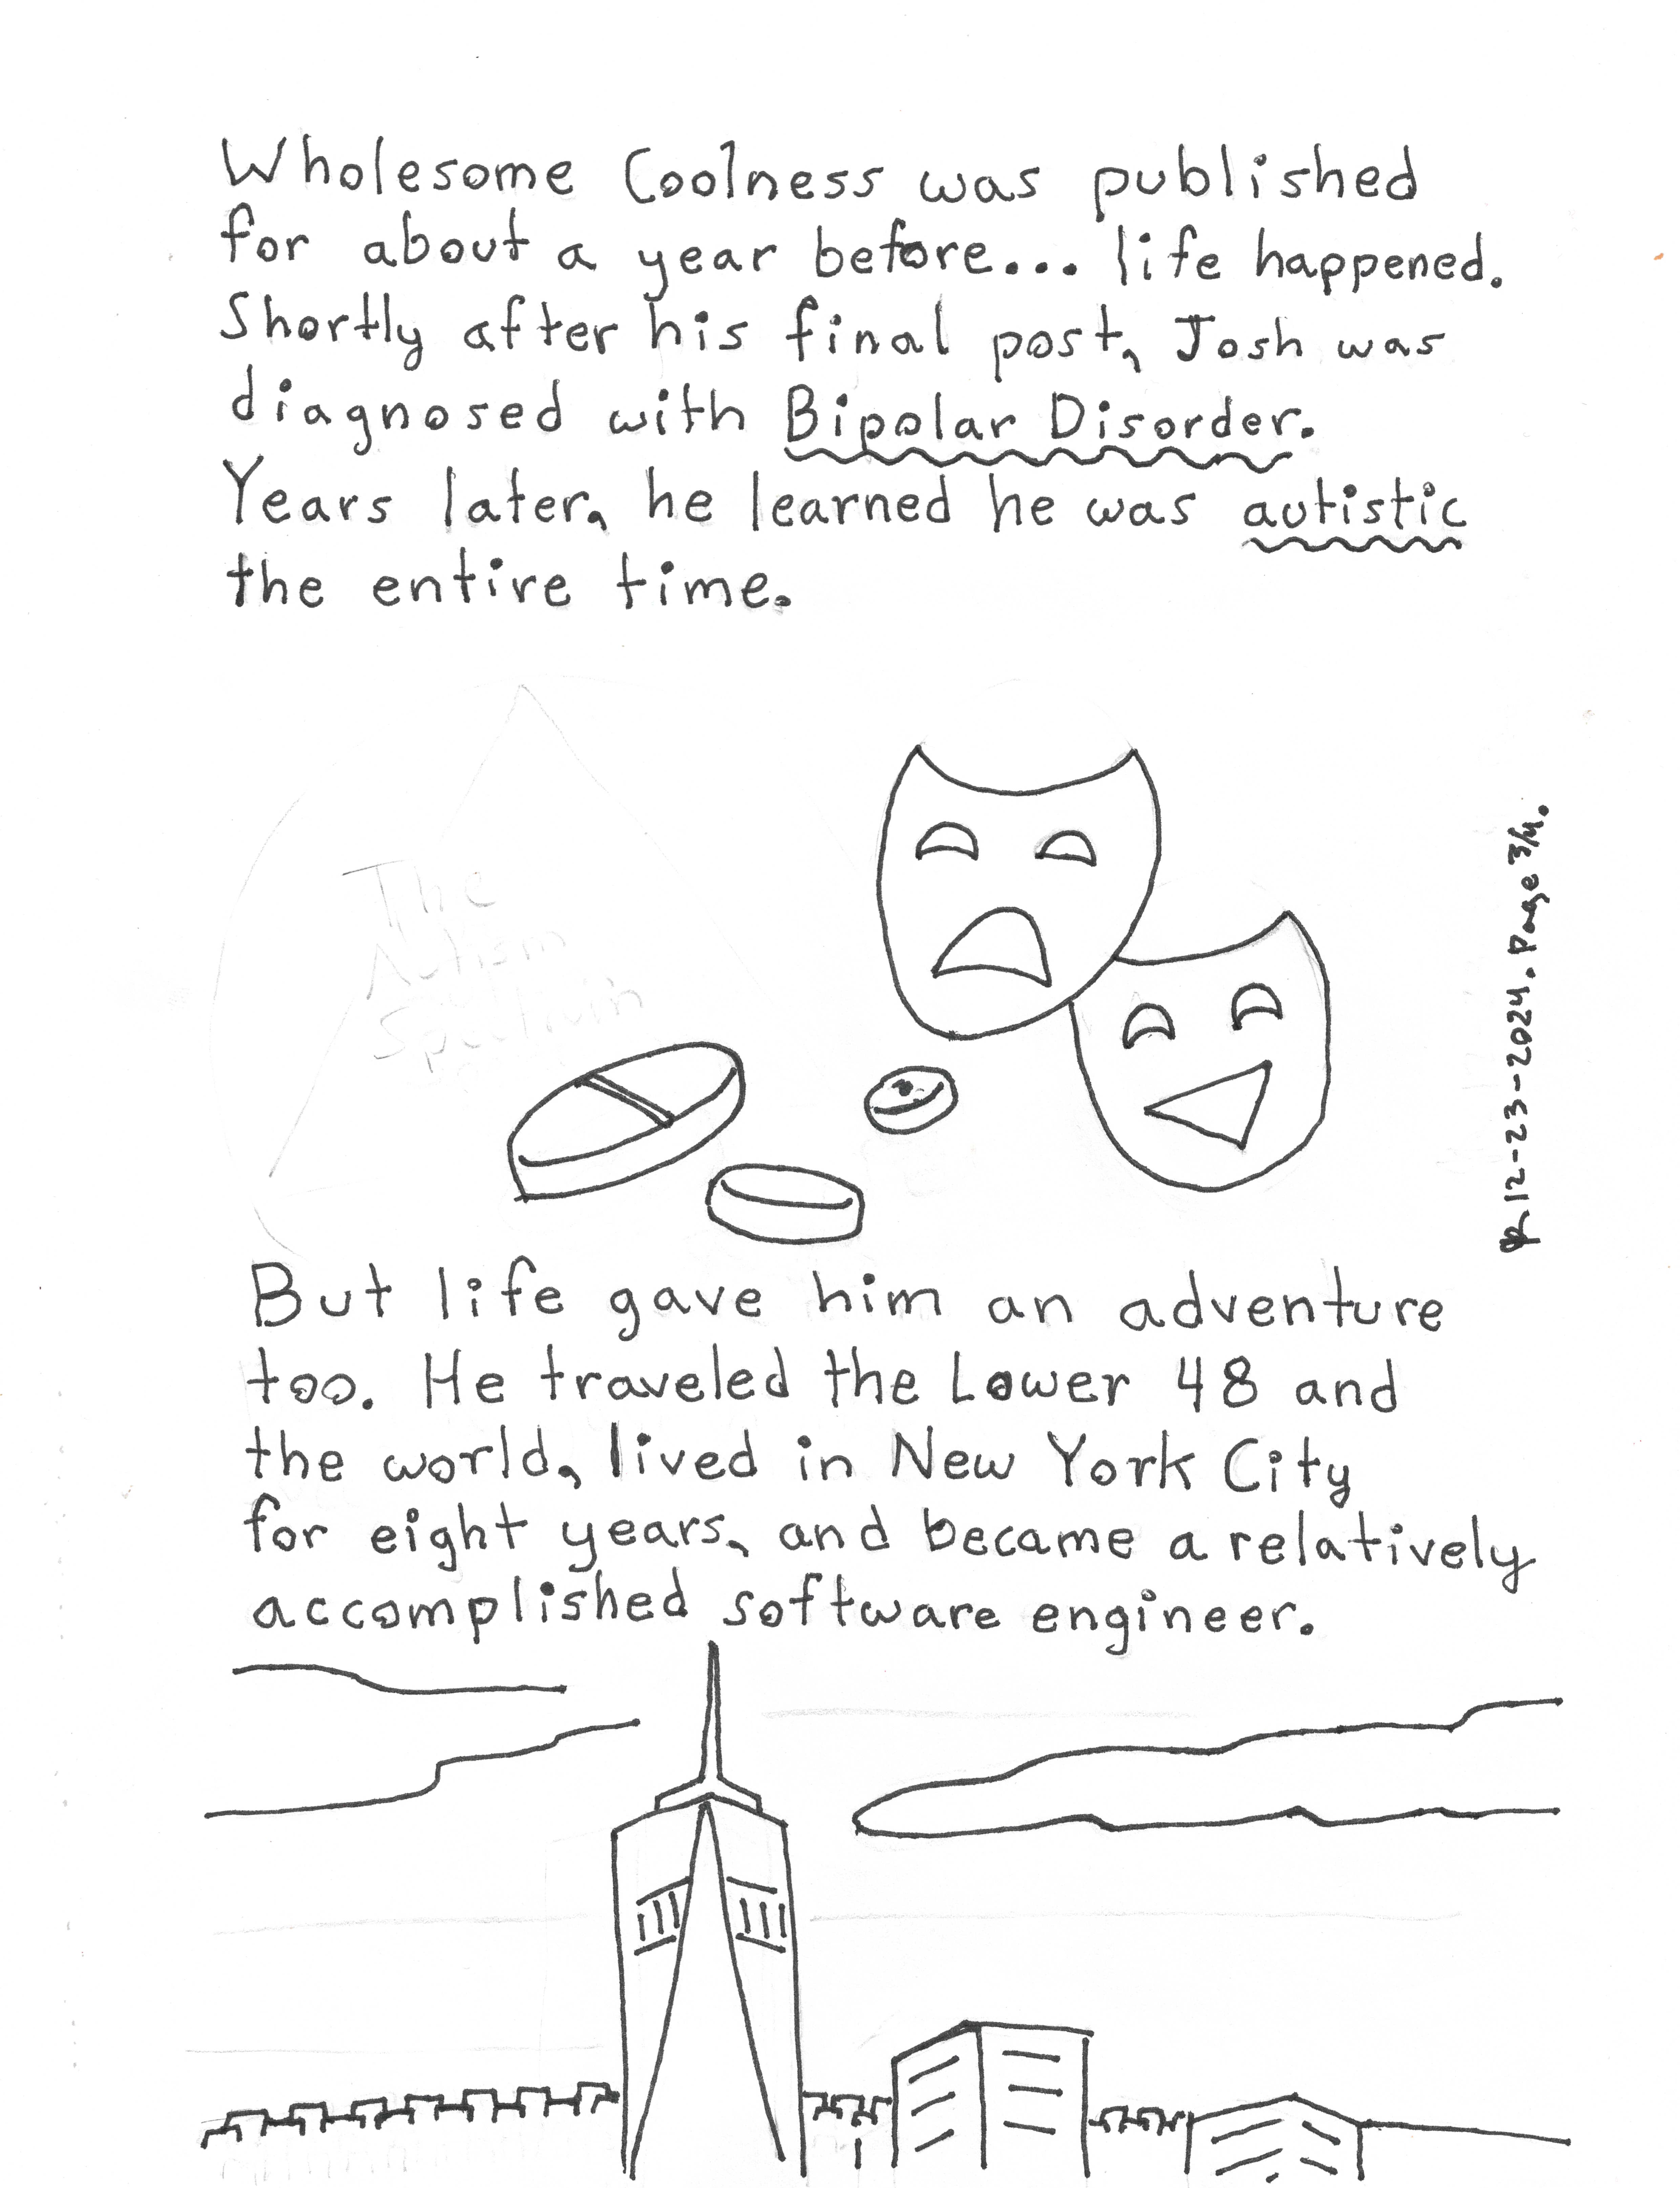 Wholesome Coolness was published
for about a year before... life happened.
Shortly after his final post, Josh was
diagnosed with Bipolar Disorder.
Years later, he learned he was autistic
the entire time.
The
Autism
12-23-2024. Page 3/4.
But life gave him an adventure
too. He traveled the Lower 48 and
the world, lived in New York City
for eight years, and became a relatively
accomplished software engineer.